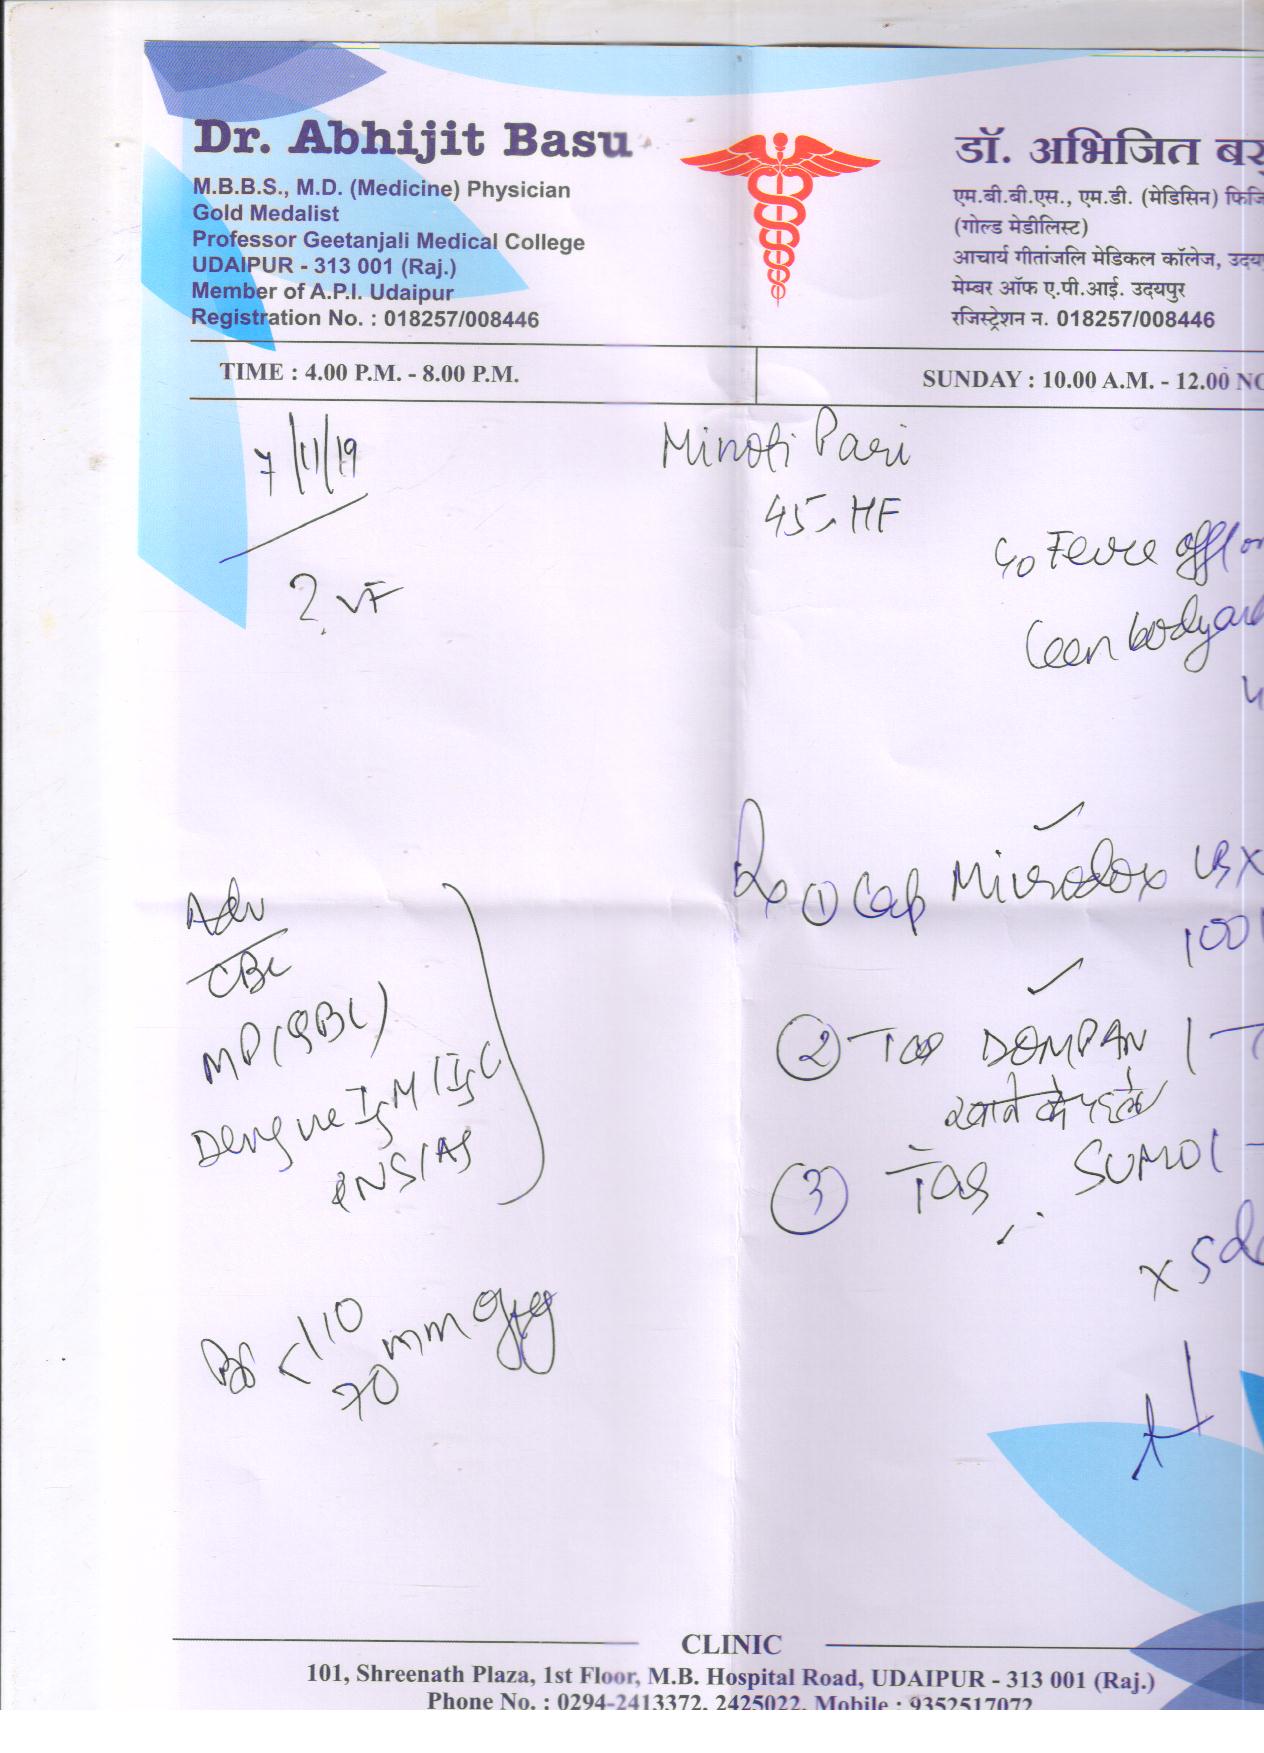 Dr. Abhijit Basu
M.B.B.S., M.D. (Medicine) Physician
Gold Medalist
Professor Geetanjali Medical College
UDAIPUR - 313 001 (Raj.)
Member of A.P.I. Udaipur
Registration No. : 018257/008446
डॉ. अभिजित
एम.बी.बी.एस., एम.डी. (मेडिसिन)
(गोल्ड मेडीलिस्ट)
आचार्य गीतांजलि मेडिकल कॉलेज,
मेम्बर ऑफ ए.पी.आई. उदयपुर
रजिस्ट्रेशन न. 018257/008446
TIME : 4.00 P.M. - 8.00 P.M.
SUNDAY : 10.00 A.M. - 12.00
7/11/19
Minoti
45
? VF
Rx ① Cap Microdox
100
② Tab DOMPAN 1
खाने के पहले
③ Tab SUMO 1
x 5d
Adv
CBC
MP (QBC)
Dengue IgM/IgG
NS1Ag
110
70 mm of Hg
CLINIC
101, Shreenath Plaza, 1st Floor, M.B. Hospital Road, UDAIPUR - 313 001 (Raj.)
Phone No. : 0294-2413372, 2425022, Mobile : 9352517072